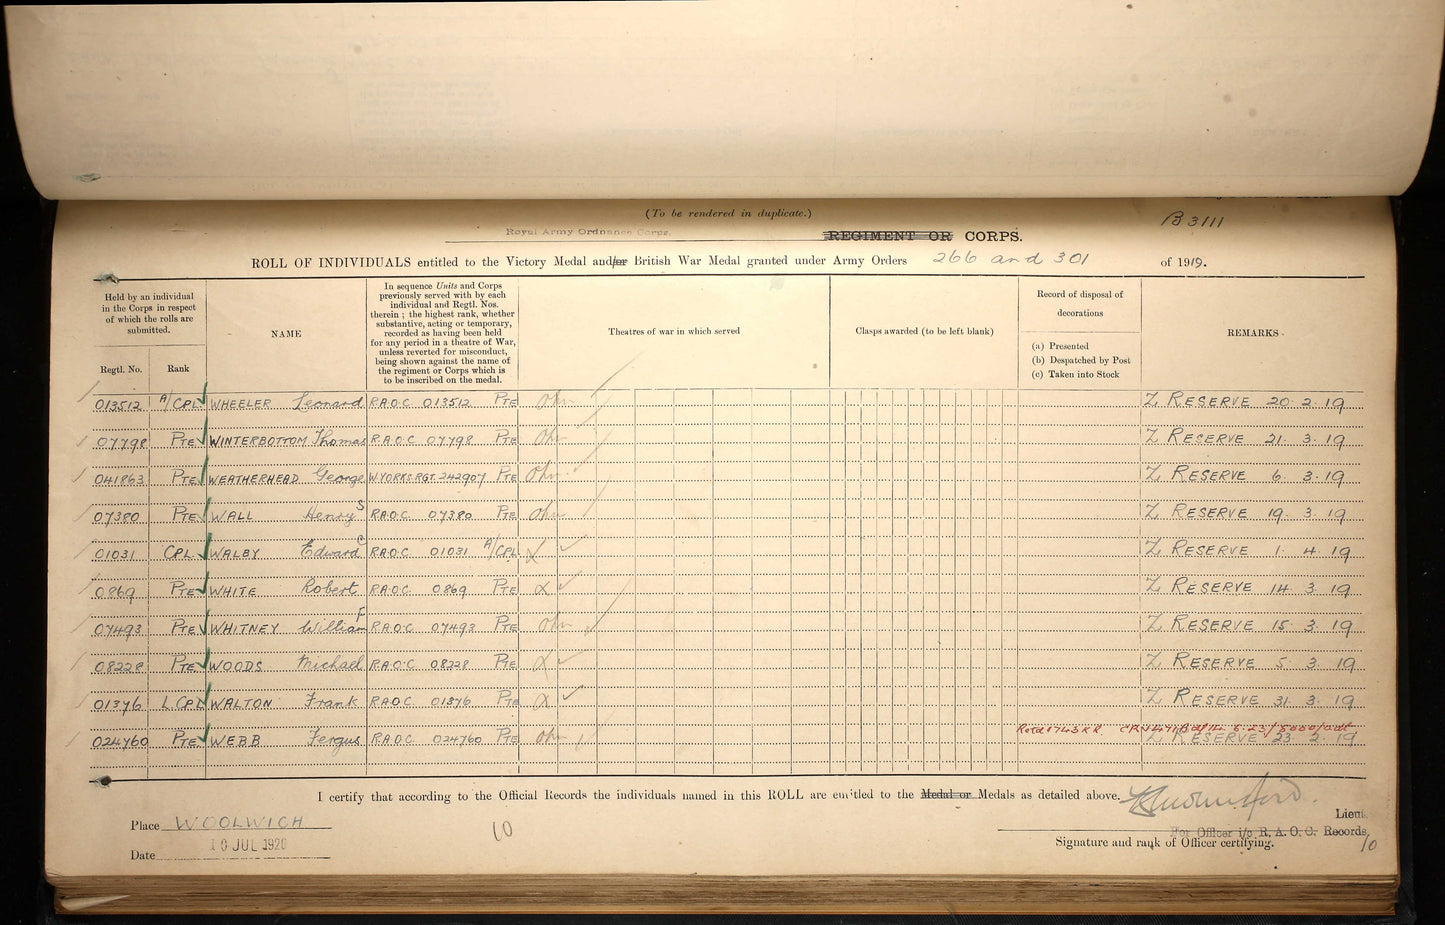 (To be rendered in duplicate.)
B 3111
Royal Army Ordnance Corps. REGIMENT OR CORPS.
ROLL OF INDIVIDUALS entitled to the Victory Medal and/or British War Medal granted under Army Orders 266 and 301 of 1919.
Held by an individual
in the Corps in respect
of which the rolls are
submitted.
Regtl. No.
Rank
NAME
In sequence Units and Corps
previously served with by each
individual and Regtl. Nos.
therein ; the highest rank, whether
substantive, acting or temporary,
recorded as having been held
for any period in a theatre of War,
unless reverted for misconduct,
being shown against the name of
the regiment or Corps which is
to be inscribed on the medal.
Theatres of war in which served
Clasps awarded (to be left blank)
Record of disposal of
decorations
(a) Presented
(b) Despatched by Post
(c) Taken into Stock
REMARKS
013512 A/CPL WHEELER Leonard R.A.O.C. 013512 PTE Z RESERVE 20. 2. 19
07798 PTE WINTERBOTTOM Thomas R.A.O.C. 07798 PTE Z RESERVE 21. 3. 19
041863 PTE WEATHERHEAD George W.YORKS.RGT. 242907 PTE Z RESERVE 6. 3. 19
07380 PTE WALL Henry S R.A.O.C. 07380 PTE Z RESERVE 19. 3. 19
01031 CPL WALBY Edward C R.A.O.C. 01031 A/CPL Z RESERVE 1. 4. 19
0869 PTE WHITE Robert R.A.O.C. 0869 PTE Z RESERVE 14. 3. 19
07493 PTE WHITNEY William F R.A.O.C. 07493 PTE Z RESERVE 15. 3. 19
08228 PTE WOODS Michael R.A.O.C. 08228 PTE Z RESERVE 5. 3. 19
01376 L.CPL WALTON Frank R.A.O.C. 01376 PTE Z RESERVE 31. 3. 19
024760 PTE WEBB Fergus R.A.O.C. 024760 PTE Z RESERVE 23. 2. 19
I certify that according to the Official Records the individuals named in this ROLL are entitled to the Medal or Medals as detailed above.
Place WOOLWICH
10
Lieut.
For Officer i/c R. A. O. C. Records.
Date 10 JUL 1920
Signature and rank of Officer certifying.
10